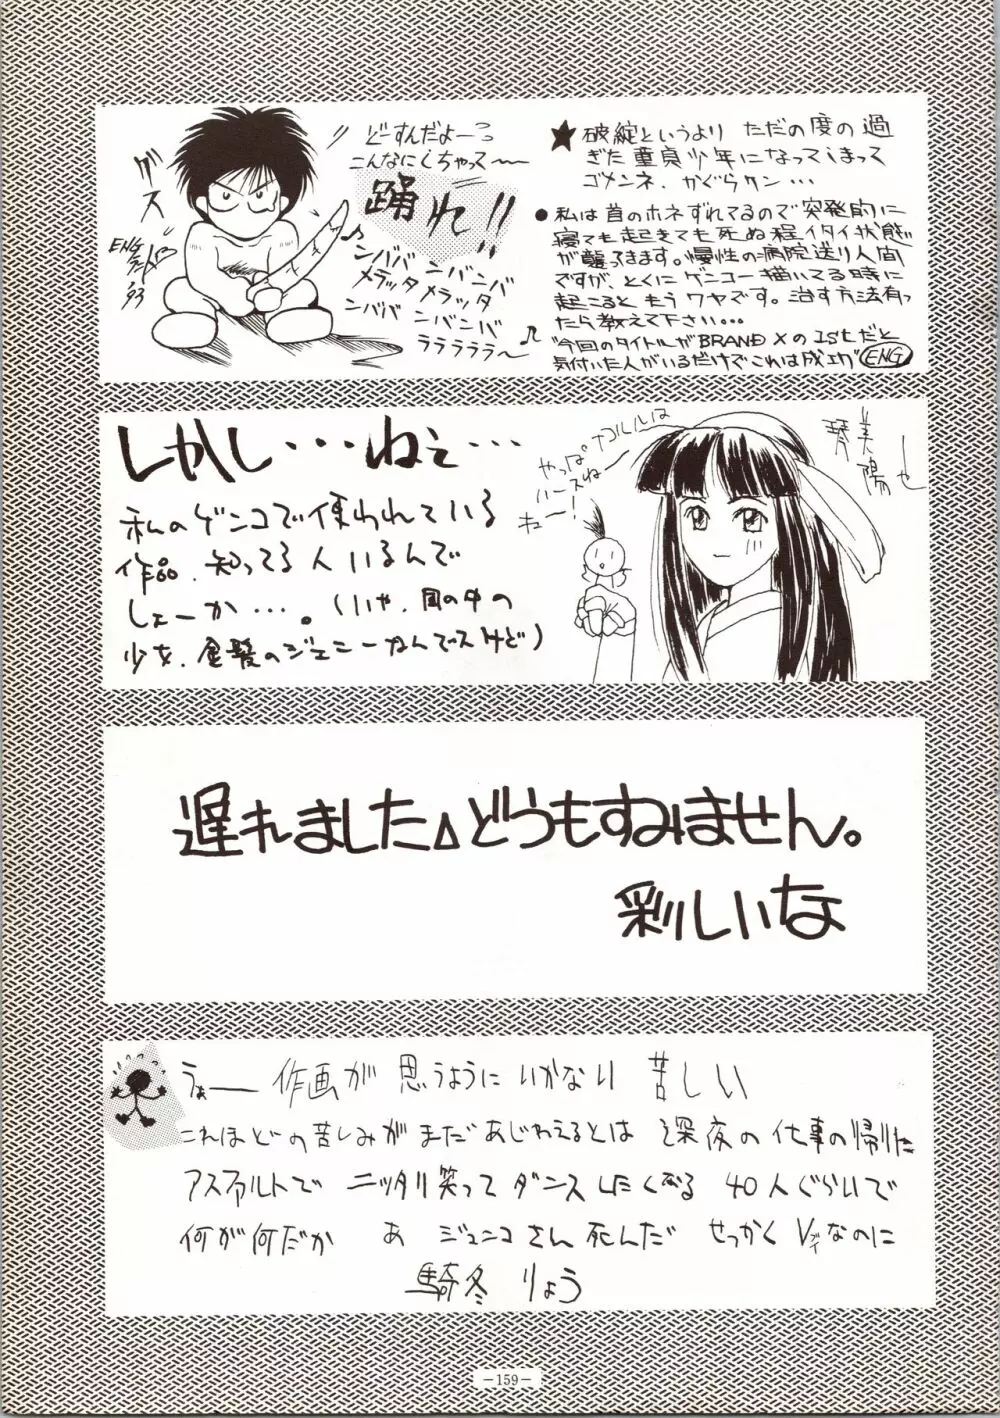 どーすんだよーっ
こんなにしちゃって〜
踊れ!!
♪
ンババ ンバンバ
メラッタメラッタ
ンババ ンバンバ
ラララララ〜♪
グス
ENG
'93
★破綻というより ただの度の過
ぎた童貞少年になってしまって
ゴメンネ、かぐらクン…
●私は首のホネずれてるので突発的に
寝ても起きても死ぬ程イタイ状態
が襲ってきます。慢性の病院送り人間
ですが、とくにゲンコー描いてる時に
起こると もうワヤです。治す方法有っ
たら教えて下さい…
"今回のタイトルがBRAND Xの1stだと
気付いた人がいるだけでこれは成功" ENG
しかし・・・ねぇ・・・
私のゲンコで使われている
作品、知ってる人いるんで
しょーか…。(いや、図の中の
少女、金髪のジェニーなんでスけど)
やっぱナコルルは
ハースねー
キュー!
琴美陽也
遅れました どうもすみません。
彩しいな
うぁー 作画が 思うように いかない 苦しい
これほどの苦しみが まだあじわえるとは 深夜の仕事の帰りに
アスファルトで ニッタリ笑って ダンスしたくなる 40人ぐらいで
何が何だか あ ジュンコさん死んだ せっかく Vなのに
騎冬 りょう
－159－